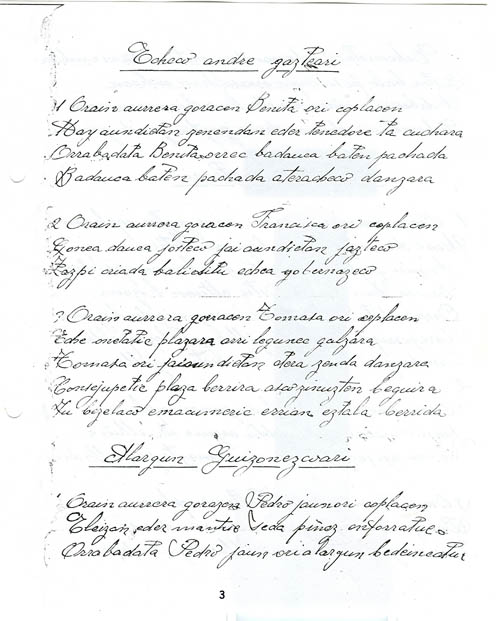 Echeco andre gazteari
1 Orain aurrera goracen Benita ori coplacen
Hay aundietan zenendan eder tenedore ta cuchara
Orrabadata Benita orrec badauca baten pachada
Badauca baten pachada ateradeco danzara
2 Orain aurrora goracen Francisca ori coplacen
Gonea dauca josteco jai aundietan jazteco
Zazpi criada balieditu echea gobernazeco
3 Orain aurrera goracen Tomasa ori coplacen
Eche onetatic plazara arri legunec galzara
Tomasa ori jai aundietan atera zenda danzara
Contejupetic plaza berrira beguira
Zu bezelaco emacumeric errian eztala berrida
Alargun Guizonezcoari
1 Orain aurrera gorazera Pedro jaun ori coplacen
eder mantue seda piñez enforratue
Orrabadata Pedro jaun ori alargun bedeincatue
3